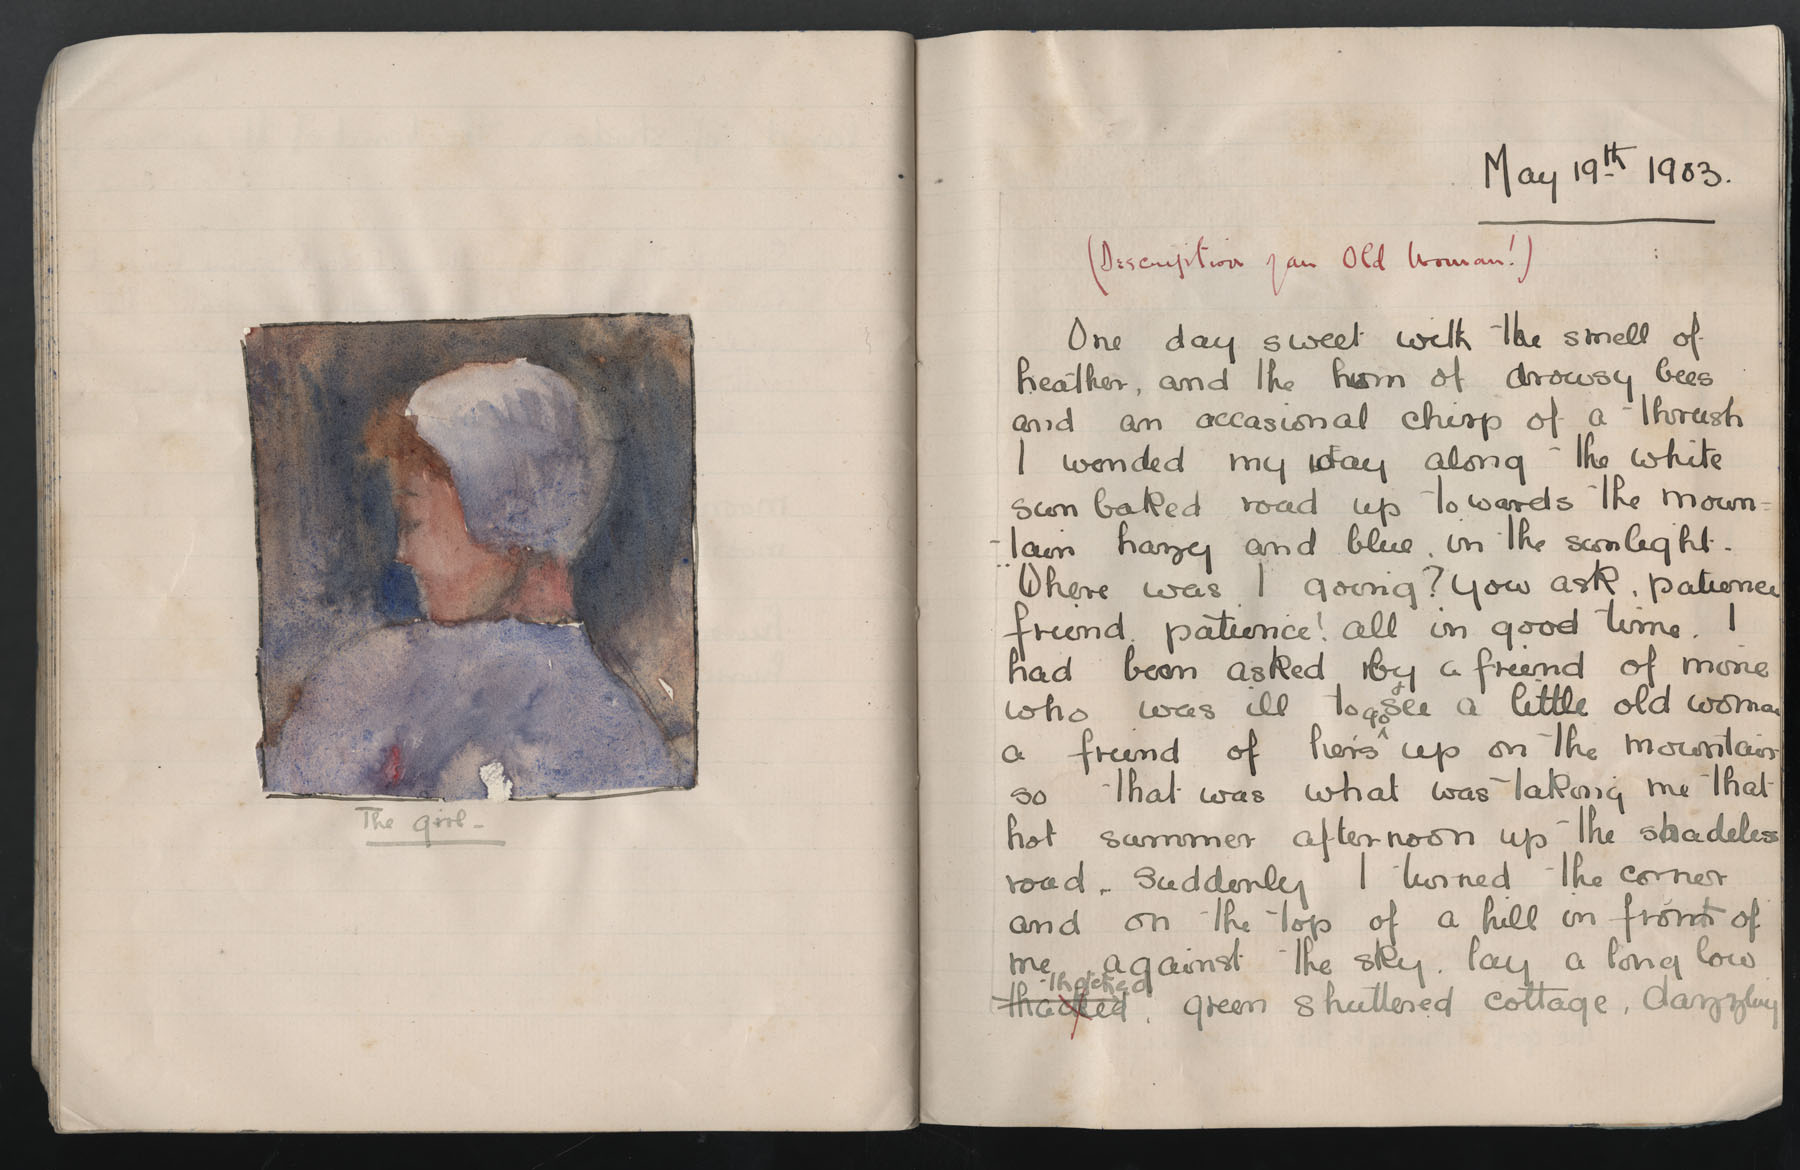 The girl -
May 19th 1903.
(Description of an Old Woman!)
One day sweet with the smell of
heather, and the hum of drowsy bees
and an occasional chirp of a thrush
I wended my way along the white
sun baked road up towards the moun=
tain hazy and blue, in the sunlight.
Where was I going? you ask, patience
friend, patience! all in good time. I
had been asked by a friend of mine
who was ill to go & see a little old woman
a friend of hers up on the mountain
so that was what was taking me that
hot summer afternoon up the shadeless
road. Suddenly I turned the corner
and on the top of a hill in front of
me, against the sky, lay a long low
thatched
thacked, green shuttered cottage, dazzling